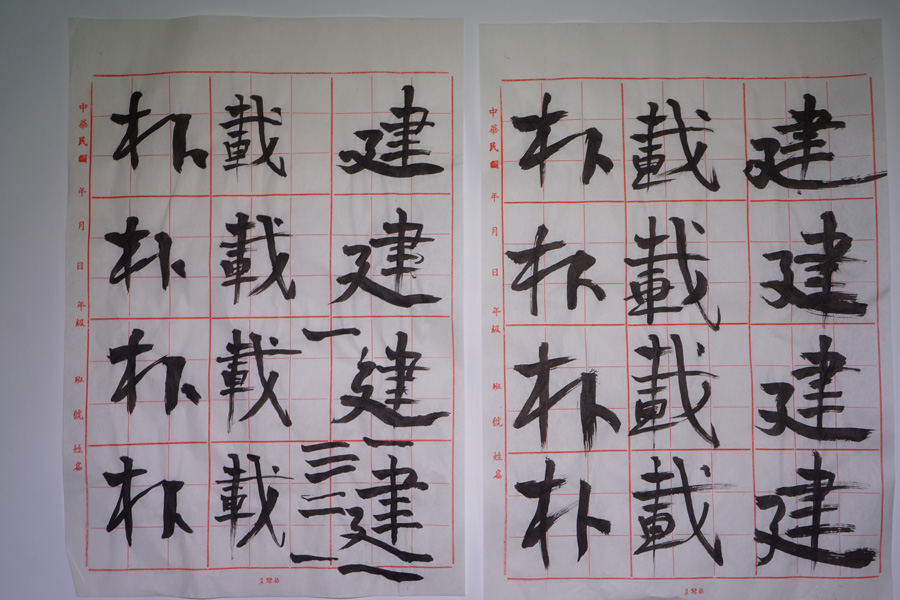 建建建建
載載載載
朴朴朴朴
中華民國 年 月 日 年級 班 號 姓名
建建建建
載載載載
朴朴朴朴
中華民國 年 月 日 年級 班 號 姓名